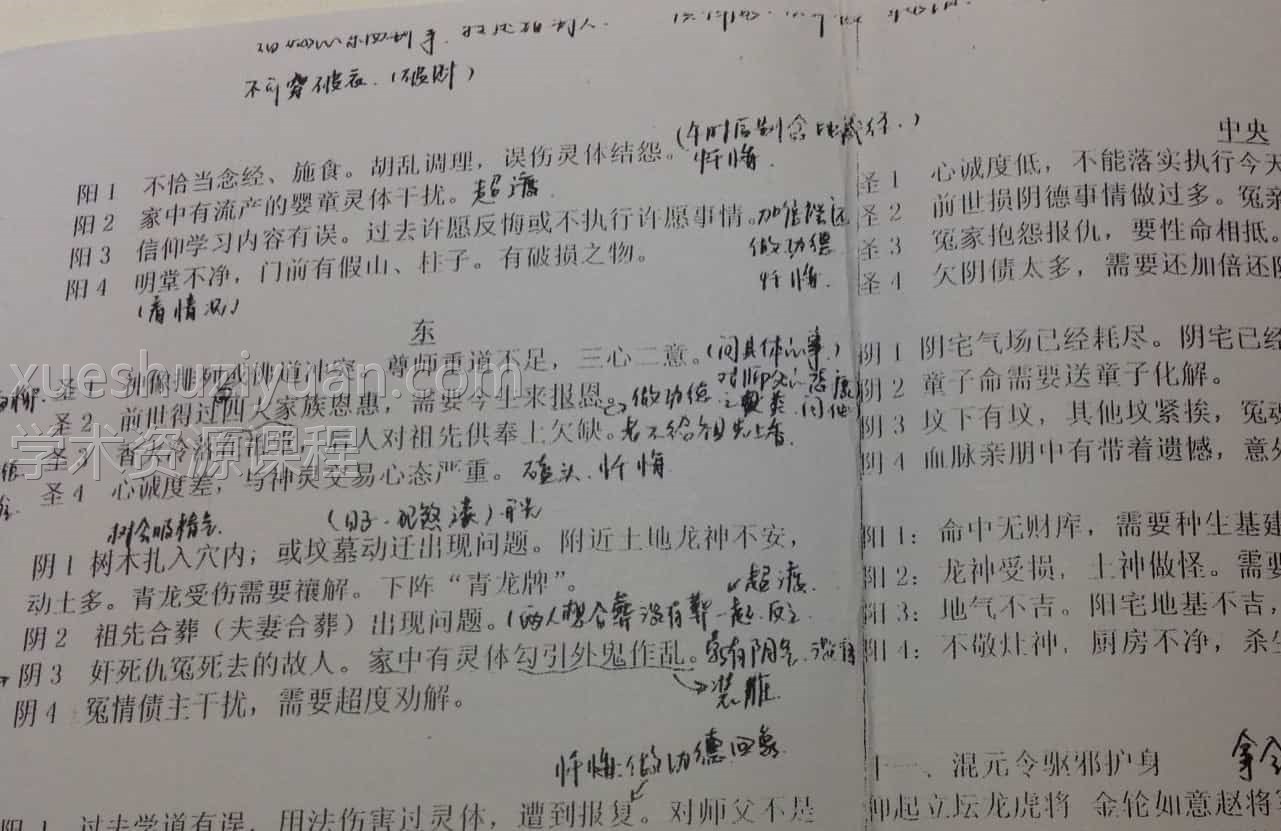 不可穿破衣.（破财）
（午时后别念地藏经.）
阳1 不恰当念经、施食。胡乱调理，误伤灵体结怨。忏悔.
阳2 家中有流产的婴童灵体干扰。超渡
阳3 信仰学习内容有误。过去许愿反悔或不执行许愿事情。加倍偿还
做功德
阳4 明堂不净，门前有假山、柱子。有破损之物。
忏悔.
（看情况）
东
圣1 神像排列或佛道冲突。尊师重道不足，三心二意。（问具体心事）
圣2 前世得过四大家族恩惠，需要今生来报恩。做功德
圣3 香火冷落有祖师，后人对祖先供奉上欠缺。老不给祖先上香.
圣4 心诚度差，与神灵交易心态严重。磕头.忏悔
树会吸精气.
阴1 树木扎入穴内；或坟墓动迁出现问题。附近土地龙神不安，
动土多。青龙受伤需要禳解。下阵“青龙牌”。
超渡.
阴2 祖先合葬（夫妻合葬）出现问题。（两人想合葬没有葬一起.反之
阴3 奸死仇冤死去的故人。家中有灵体勾引外鬼作乱。
阴4 冤情债主干扰，需要超度劝解。
忏悔.做功德回象
阳1 过去学道有误，用法伤害过灵体，遭到报复。对师父不是
中央
圣1 心诚度低，不能落实执行今天
圣2 前世损阴德事情做过多。冤亲
圣3 冤家抱怨报仇，要性命相抵。
圣4 欠阴债太多，需要还加倍还阴
阴1 阴宅气场已经耗尽。阴宅已经
阴2 童子命需要送童子化解。
阴3 坟下有坟，其他坟紧挨，冤动
阴4 血脉亲朋中有带着遗憾，意外
阳1：命中无财库，需要种生基建
阳2：龙神受损，土神做怪。需要
阳3：地气不吉。阳宅地基不吉，
阳4：不敬灶神，厨房不净，杀生
十一、混元令驱邪护身
仰起立坛龙虎将 金轮如意赵将
xueshuziyuan.com
学术资源课程